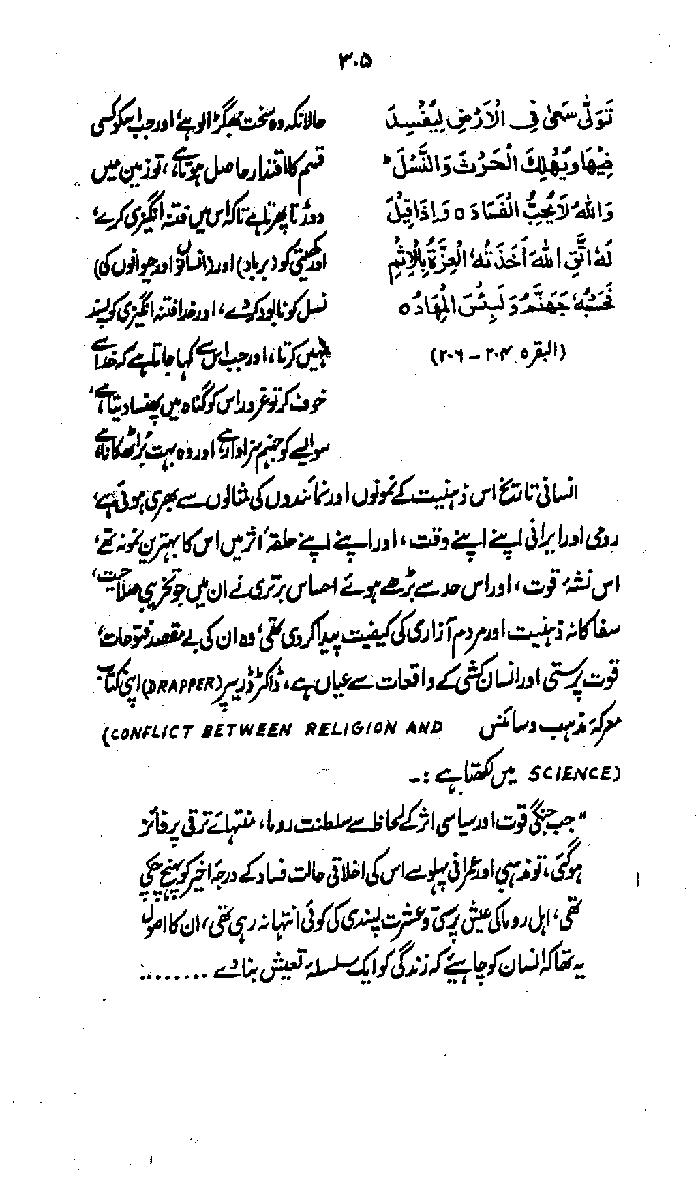 ۳۰۵
تَوَلّٰى سَعٰى فِى الْاَرْضِ لِيُفْسِدَ
فِيْهَا وَيُهْلِكَ الْحَرْثَ وَالنَّسْلَ ؕ
وَاللهُ لَا يُحِبُّ الْفَسَادَ ٥ وَاِذَا قِيْلَ
لَهُ اتَّقِ اللهَ اَخَذَتْهُ الْعِزَّةُ بِالْاِثْمِ
فَحَسْبُهٗ جَهَنَّمُ وَلَبِئْسَ الْمِهَادُ ٥
(البقرہ ۲۰۴ – ۲۰۶)
حالانکہ وہ سخت جھگڑالو ہے، اور جب اسکو کسی
قسم کا اقتدار حاصل ہوتا ہے، تو زمین میں
دوڑتا پھرتا ہے تاکہ اس میں فتنہ انگیزی کرے،
اور کھیتی کو (برباد) اور (انسانوں اور حیوانوں کی)
نسل کو نابود کر دے، اور خدا فتنہ انگیزی کو پسند
نہیں کرتا، اور جب اس سے کہا جاتا ہے کہ خدا سے
خوف کر تو غرور اس کو گناہ میں پھنسا دیتا ہے،
سو ایسے کو جہنم سزاوار ہے اور وہ بہت بُرا ٹھکانا ہے
انسانی تاریخ اس ذہنیت کے نمونوں اور نمائندوں کی مثالوں سے بھری ہوئی ہے،
رومی اور ایرانی اپنے اپنے وقت، اور اپنے اپنے حلقۂ اثر میں اس کا بہترین نمونہ تھے،
اس نشۂ قوت، اور اس حد سے بڑھے ہوئے احساس برتری نے ان میں جو تخریبی صلاحیت،
سفاکانہ ذہنیت اور مردم آزاری کی کیفیت پیدا کر دی تھی، وہ ان کی بے مقصد فتوحات،
قوت پرستی اور انسان کشی کے واقعات سے عیاں ہے، ڈاکٹر ڈریپر (DRAPPER) اپنی کتاب
معرکۂ مذہب و سائنس (CONFLICT BETWEEN RELIGION AND
SCIENCE) میں لکھتا ہے :۔
"جب جنگی قوت اور سیاسی اثر کے لحاظ سے سلطنت روما، منتہائے ترقی پر فائز
ہو گئی، تو مذہبی اور عمرانی پہلو سے اس کی اخلاقی حالت فساد کے درجۂ اخیر کو پہنچ چکی
تھی، اہل روما کی عیش پرستی و عشرت پسندی کی کوئی انتہا نہ رہی تھی، ان کا اصول
یہ تھا کہ انسان کو چاہیئے کہ زندگی کو ایک سلسلۂ تعیش بنا دے ........